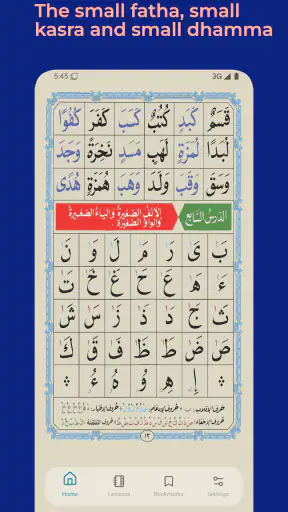 The small fatha, small
kasra and small dhamma
5:45
3G
قَسَمٌ كَبَدٍ كُتُبٌ كَسَبَ كَفَرَ كُفُوًا
لُبَدًا لُمَزَةٍ لَهَبٍ مَسَدٍ نَخِرَةً وَجَدَ
وَسَقَ وَقَبَ وَلَدَ وَهَبَ هُمَزَةٍ هُدًى
الدَّرْسُ السَّابِعُ
اَلْأَلِفُ الصَّغِيرَةُ وَالْيَاءُ الصَّغِيرَةُ
وَالْوَاوُ الصَّغِيرَةُ
بٰ یٰ رٰ مٰ لٰ وٰ نٰ
ءٰ هٰ عٰ حٰ غٰ خٰ تٰ
ثٰ جٰ دٰ ذٰ زٰ سٰ شٰ
صٰ ضٰ طٰ ظٰ فٰ قٰ كٰ
١٣
Home
Lessons
Bookmarks
Settings